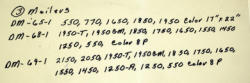 ③ Mailers
DM-65-1 550, 770, 1650, 1850, 1950 Color 17" x 22"
DM-68-1 1950-T, 1950BM, 1850, 1750, 1650, 1550, 1450
1250, 550, Color 8P
DM-69-1 2150, 2050, 1950-T, 1950BM, 1850, 1750, 1650,
1550, 1450, 1250-A, 1250, 550 Color 8P